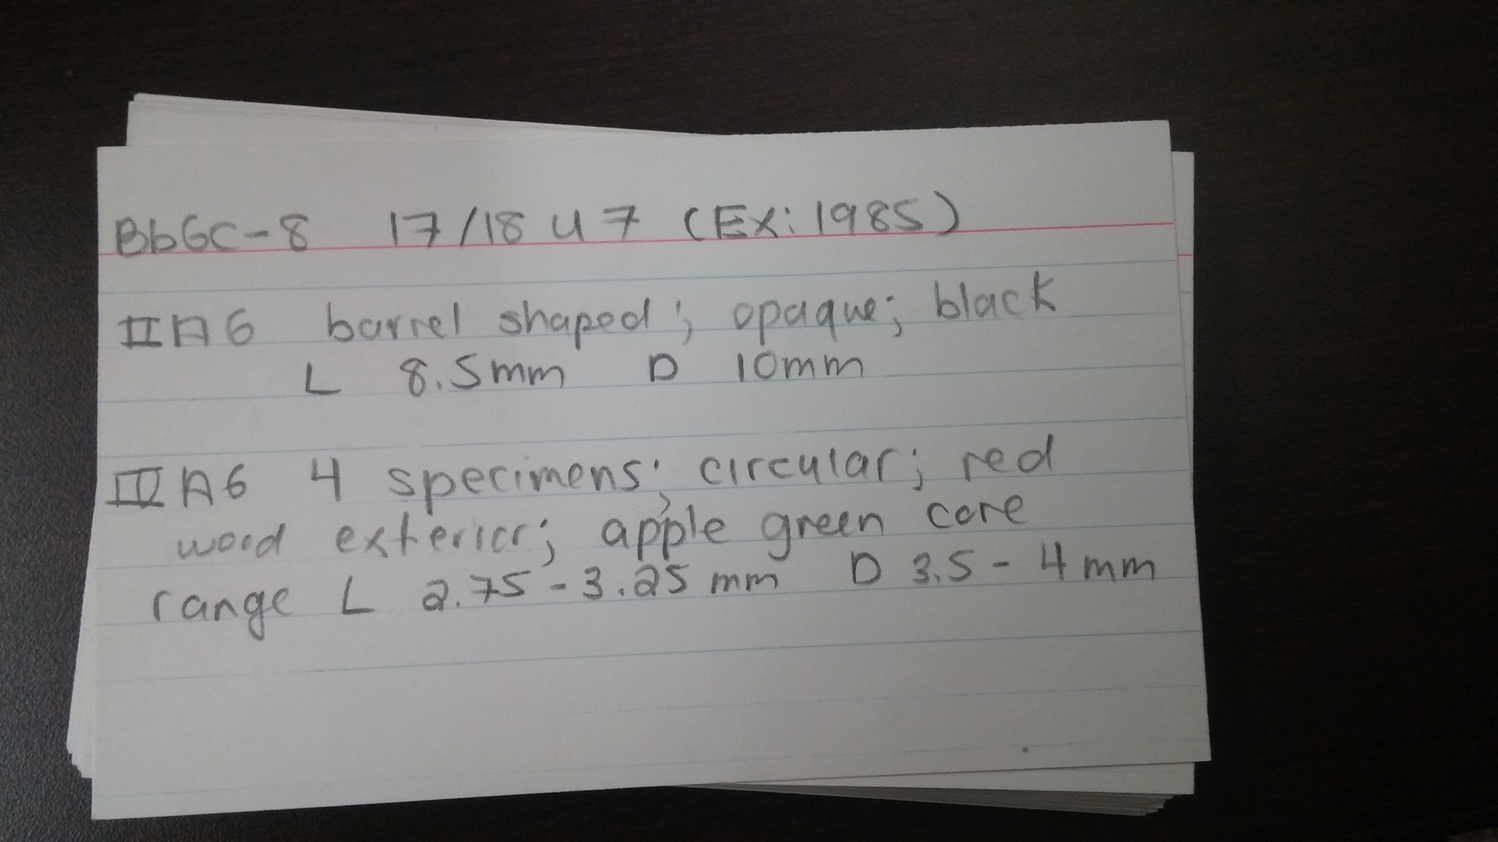 BbGc-8 17/18 U 7 (Ex: 1985)
II A 6 barrel shaped; opaque; black
L 8.5mm D 10mm
IV A 6 4 specimens; circular; red
wood exterior; apple green core
range L 2.75 - 3.25 mm D 3.5 - 4 mm